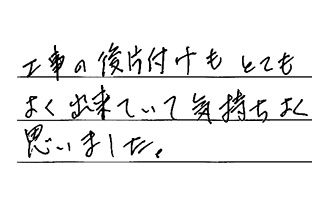 工事の後片付けも とても
よく出来ていて気持ちよく
思いました。